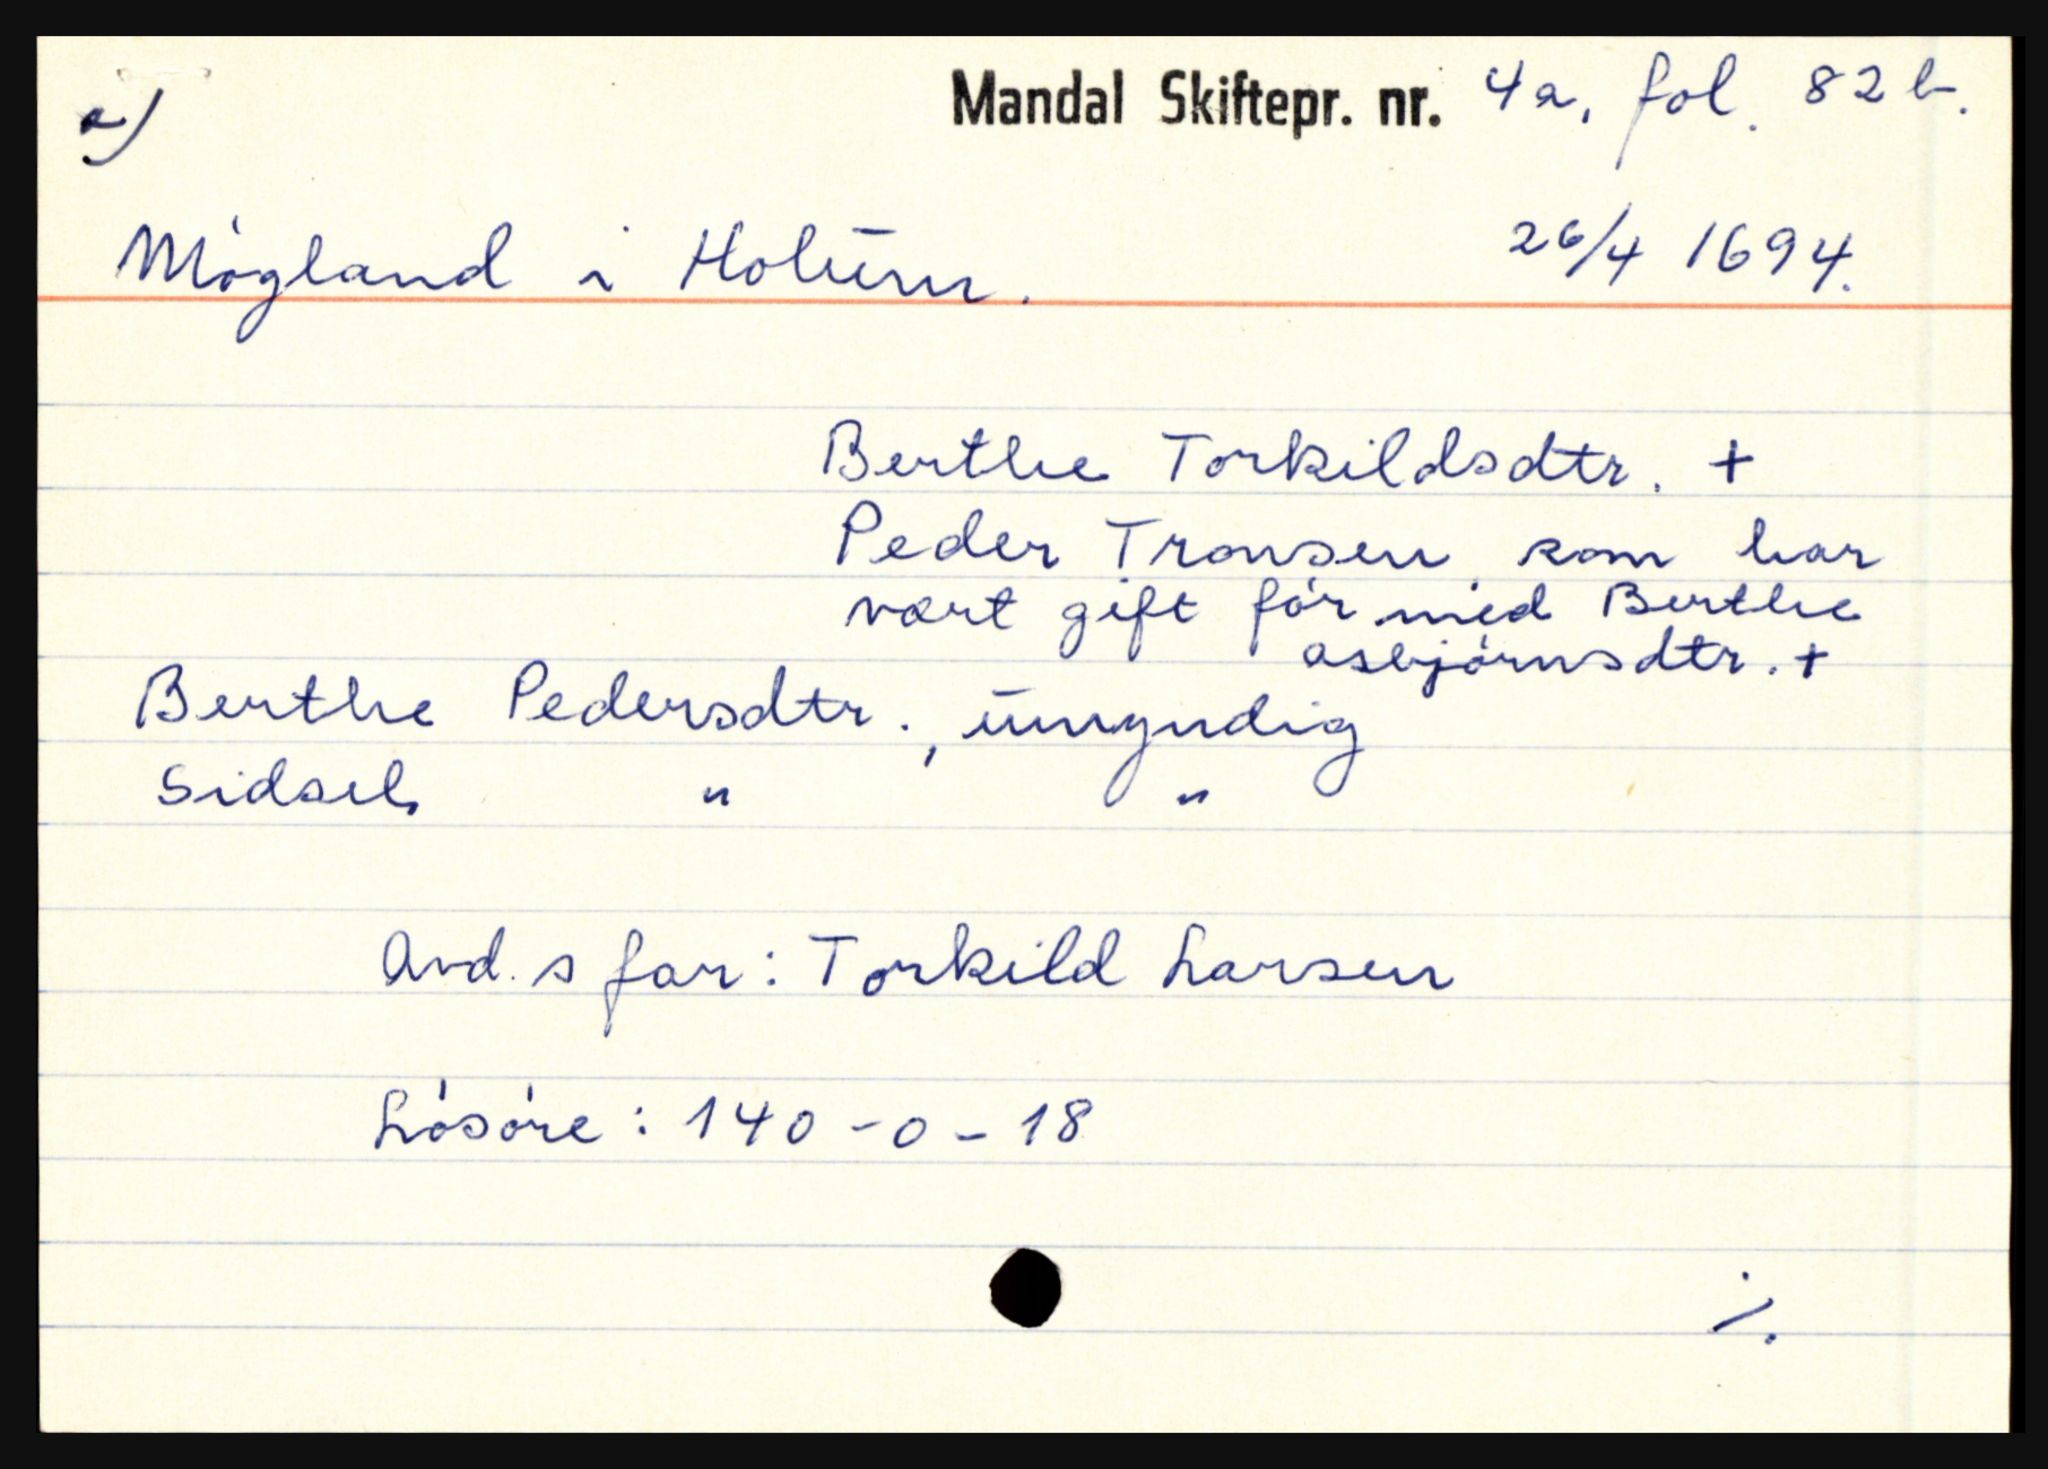 a)
Mandal Skiftepr. nr. 4a, fol. 82 b.
Mögland i Holum.
26/4 1694.
Berthe Torkildsdtr. +
Peder Tronsen, som har
vært gift för med Berthe
asbjörnsdtr. +
Berthe Pedersdtr., umyndig
Sidsel, " "
Avd. s far: Torkild Larsen
Lösöre: 140 - 0 - 18
./.